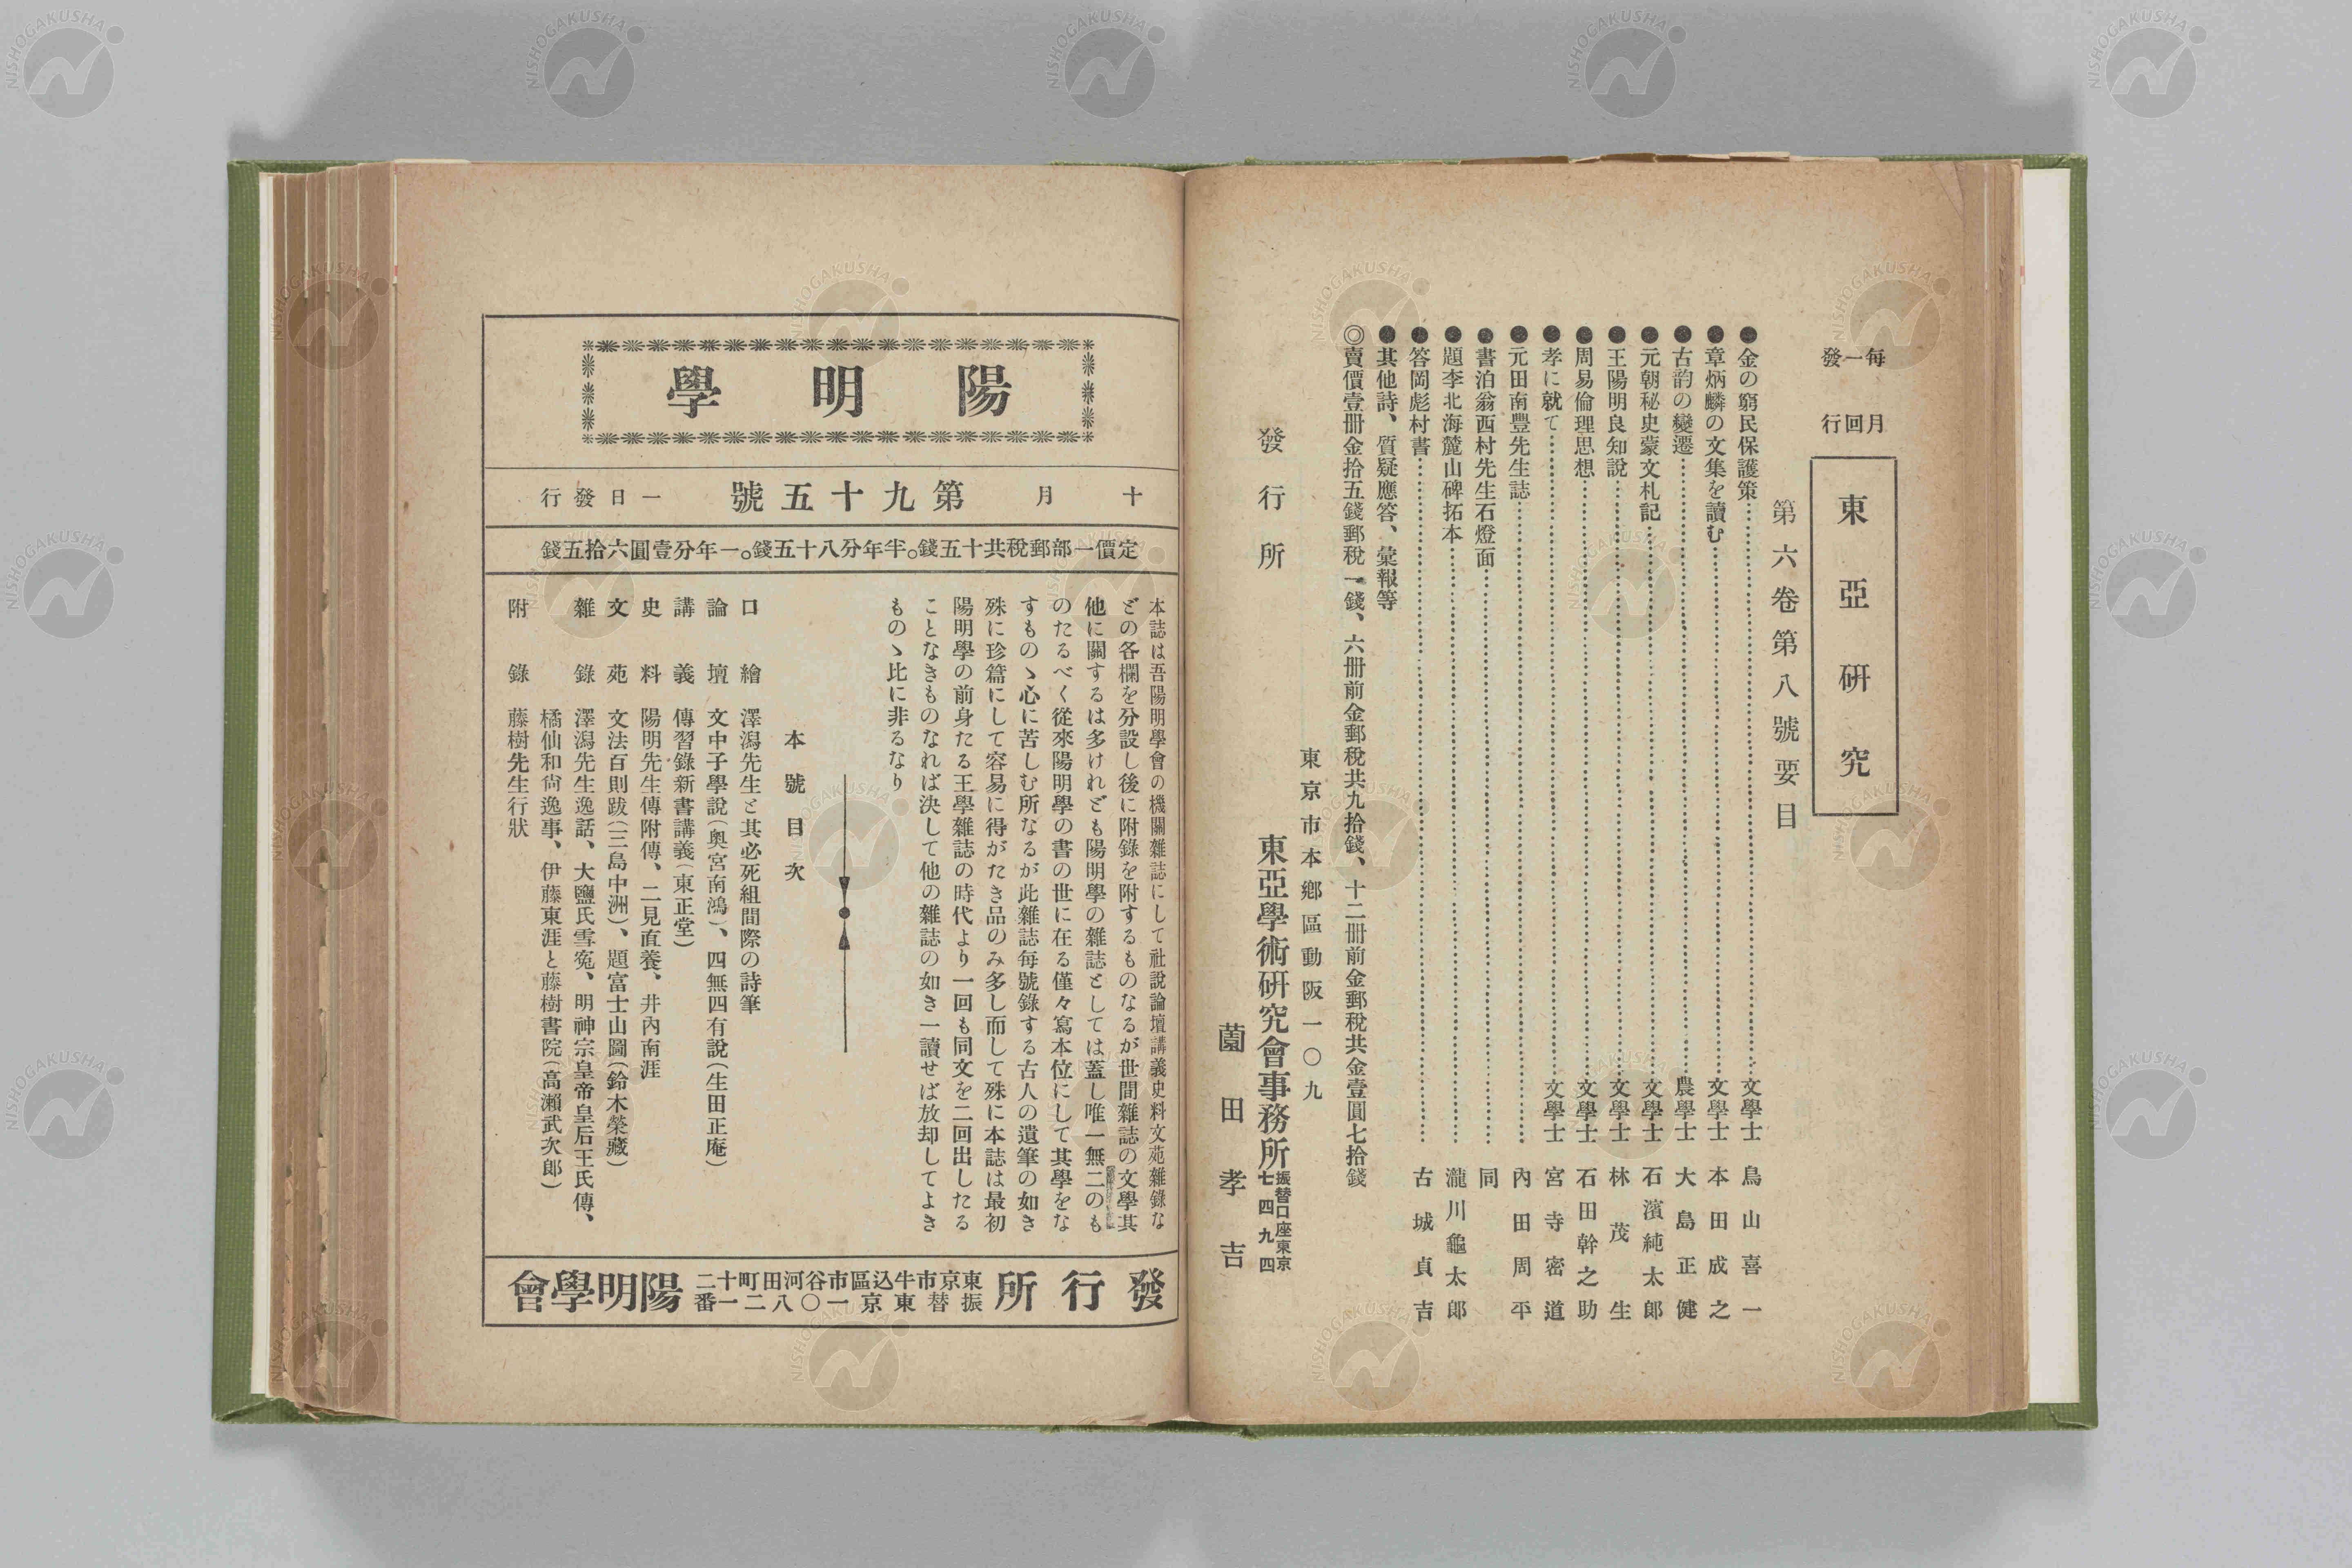 毎月一回發行
東亞研究
第六卷第八號要目
●金の窮民保護策……文學士 鳥山喜一
●章炳麟の文集を讀む……文學士 本田成之
●古韵の變遷……農學士 大島正健
●元朝秘史蒙文札記……文學士 石濱純太郎
●王陽明良知說……文學士 林茂生
●周易倫理思想……文學士 石田幹之助
●孝に就て……文學士 宮寺密道
●元田南豐先生誌……內田周平
●書泊翁西村先生石燈面……同
●題李北海麓山碑拓本……瀧川龜太郎
●答岡彪村書……古城貞吉
●其他詩、質疑應答、彙報等
◎賣價壹冊金拾五錢郵稅一錢、六冊前金郵稅共九拾錢、十二冊前金郵稅共金壹圓七拾錢
東京市本鄉區動阪一〇九
發行所 東亞學術研究會事務所 振替口座東京七四九四
薗田孝吉
陽明學
十月一日發行 第九十五號
定價一部郵稅共十五錢。半年分八十五錢。一年分壹圓六拾五錢
本誌は吾陽明學會の機關雜誌にして社說論壇講義史料文苑雜錄な
どの各欄を分設し後に附錄を附するものなるが世間雜誌の文學其
他に關するは多けれども陽明學の雜誌としては蓋し唯一無二のも
のたるべく從來陽明學の書の世に在る僅々寫本位にして其學をな
すものゝ心に苦しむ所なるが此雜誌每號錄する古人の遺筆の如き
殊に珍篇にして容易に得がたき品のみ多し而して殊に本誌は最初
陽明學の前身たる王學雜誌の時代より一回も同文を二回出したる
ことなきものなれば決して他の雜誌の如き一讀せば放却してよき
ものゝ比に非るなり
本號目次
口繪 澤潟先生と其必死組間際の詩筆
論壇 文中子學說(奧宮南鴻)、四無四有說(生田正庵)
講義 傳習錄新書講義(東正堂)
史料 陽明先生傳附傳、二見直養、井內南涯
文苑 文法百則跋(三島中洲)、題富士山圖(鈴木榮藏)
雜錄 澤潟先生逸話、大鹽氏雪寃、明神宗皇帝皇后王氏傳、
橘仙和尙逸事、伊藤東涯と藤樹書院(高瀨武次郎)
附錄 藤樹先生行狀
發行所 東京市牛込區市谷河田町十二 振替東京一〇八二一番 陽明學會
NISHOGAKUSHA